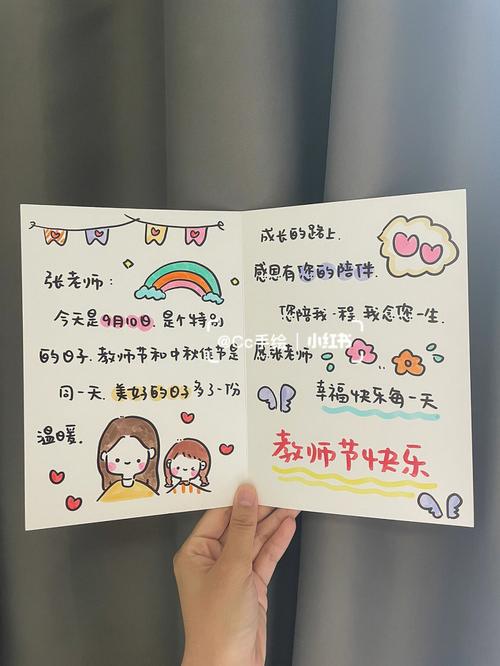 张老师:
今天是9月10日.是个特别
的日子.教师节和中秋佳节是
同一天.美好的日子多了一份
温暖.
成长的路上.
感恩有您的陪伴.
您陪我一程.我念您一生.
愿张老师
幸福快乐每一天
教师节快乐
@Cc手绘 | 小红书